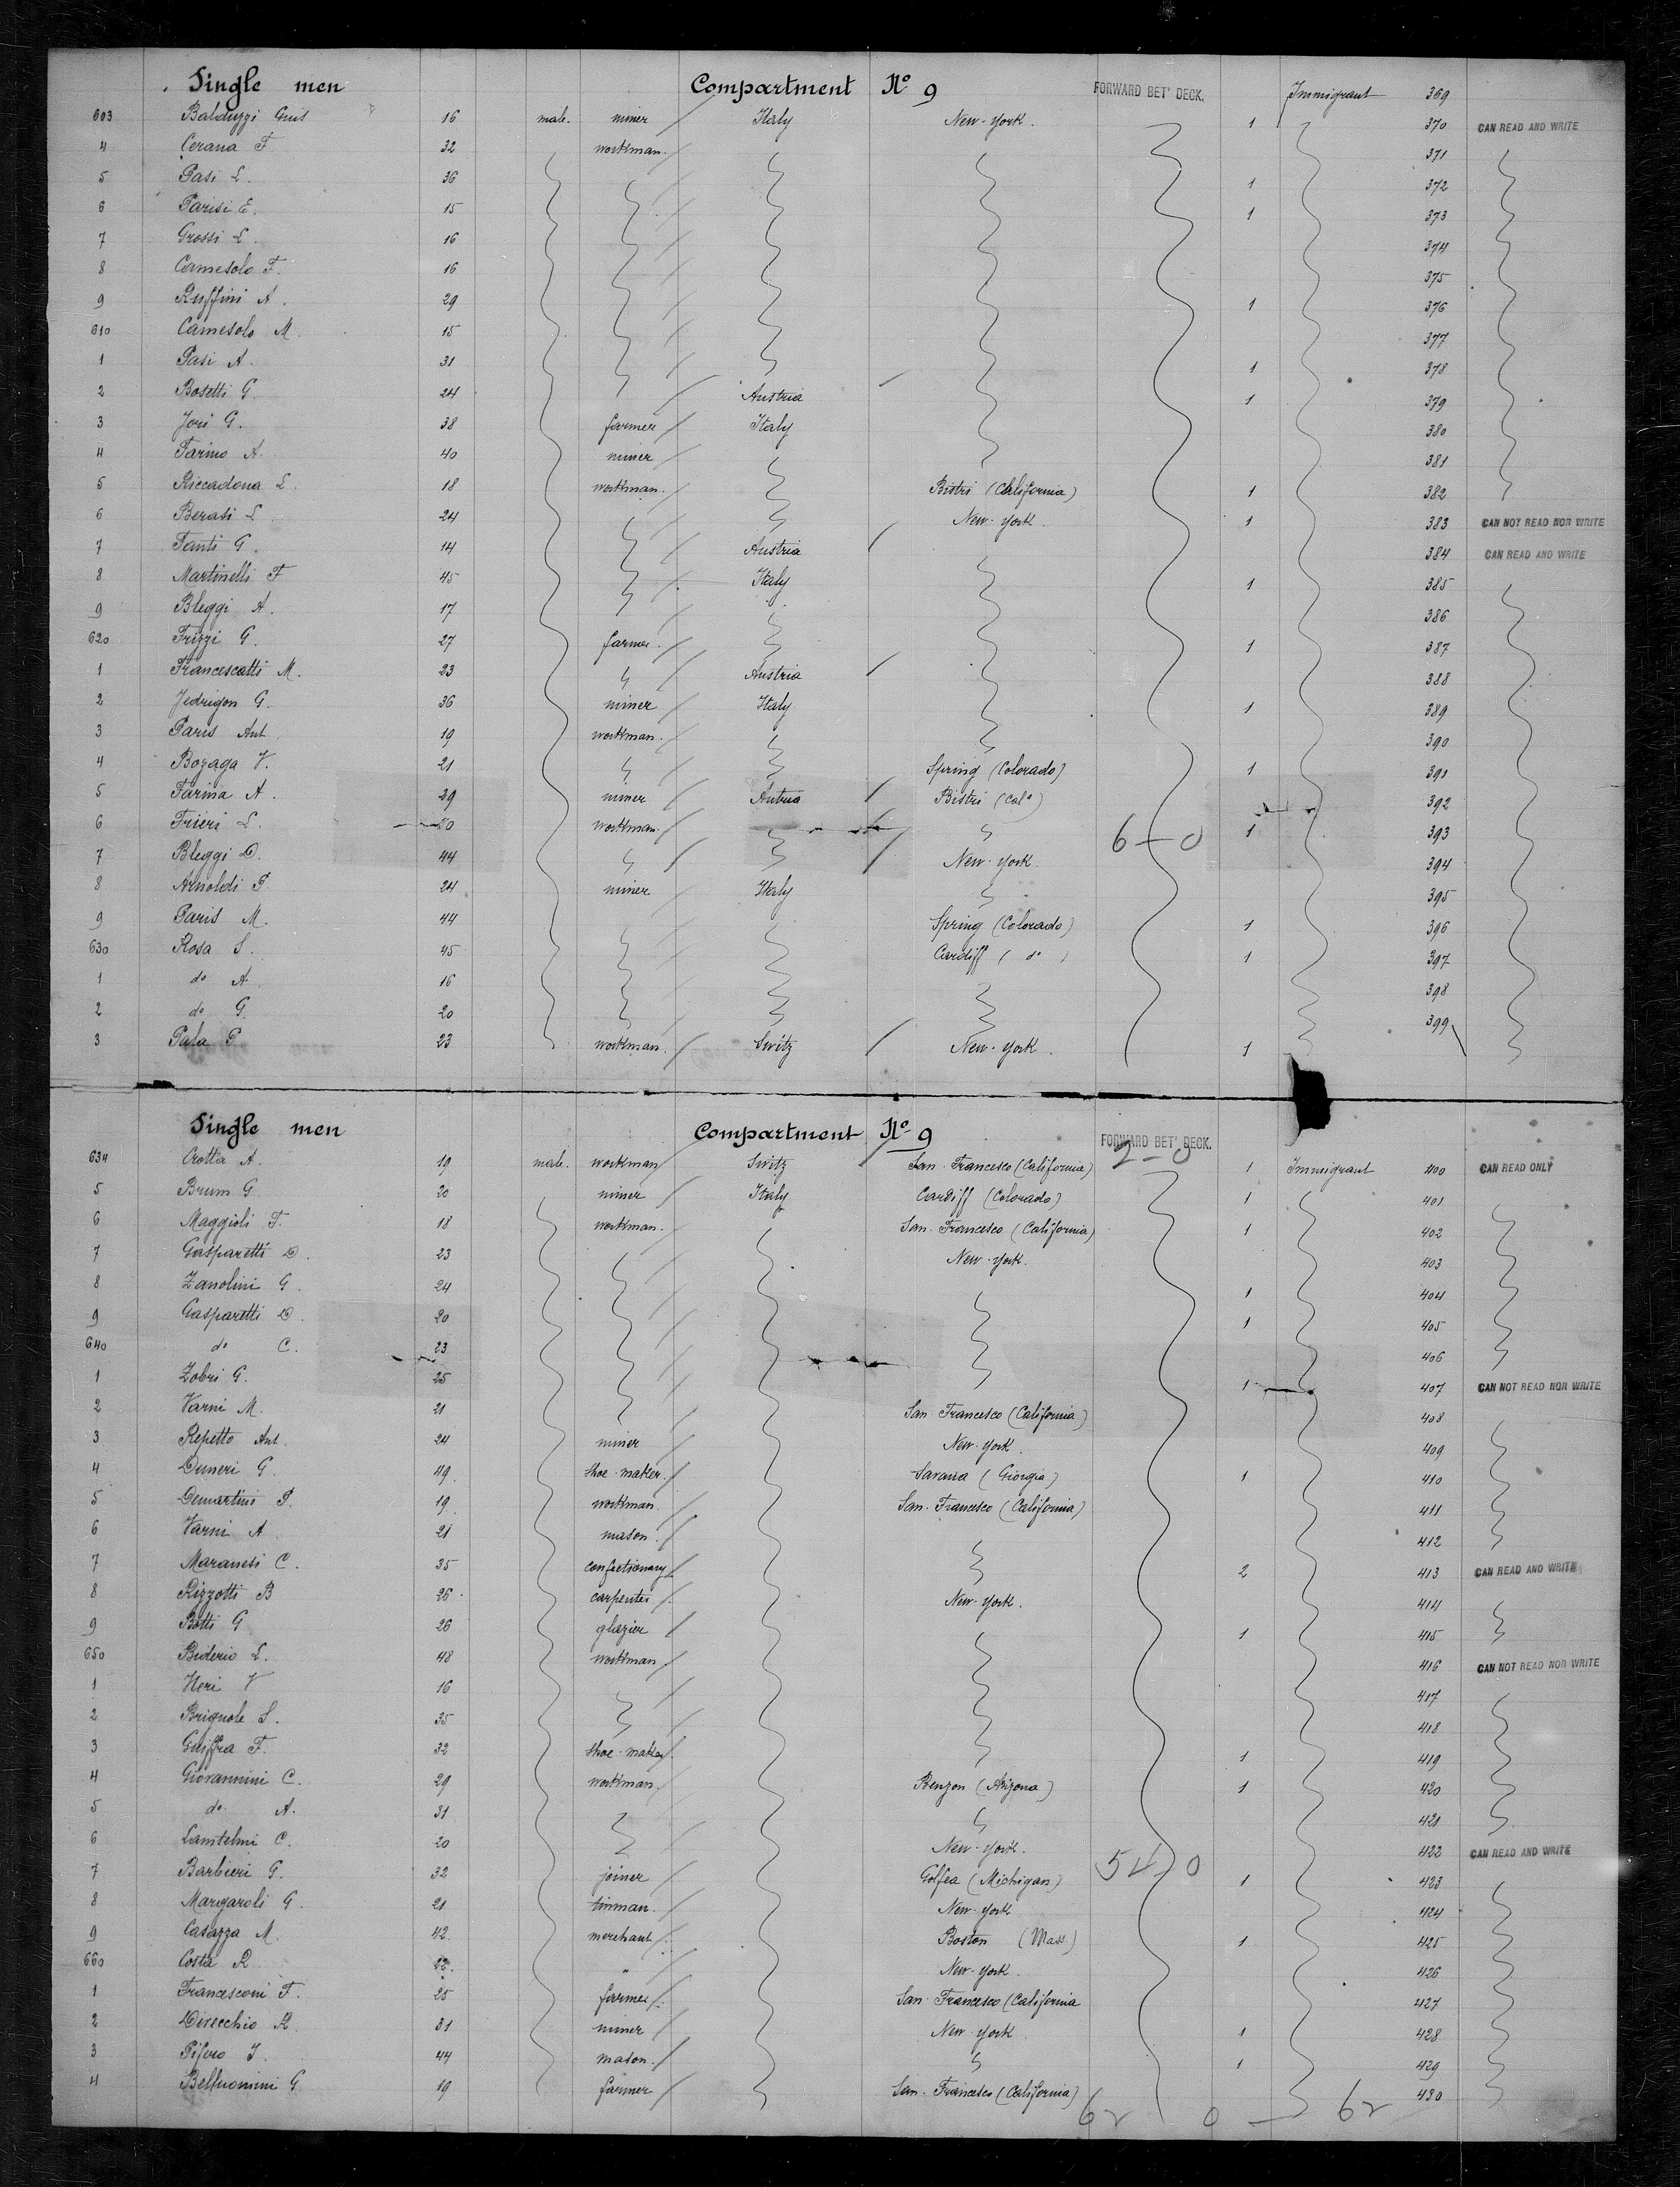 Single men Compartment No 9 FORWARD BET' DECK. Immigrant 369
603 Balduzzi Gius 16 male. miner Italy New-York. 1 370 CAN READ AND WRITE
4 Cerana F 32 workman. 371
5 Pasi L. 36 1 372
6 Parisi E. 15 1 373
7 Grossi L. 16 374
8 Camesolo F. 16 375
9 Ruffini A. 29 1 376
610 Camesolo M. 15 377
1 Pasi A. 31 1 378
2 Bosetti G. 24 Austria 1 379
3 Jori G. 38 farmer Italy 380
4 Farino A. 40 miner 381
5 Riccadona L. 18 workman. Bistri (California) 1 382
6 Berasi L 24 New-York. 1 383 CAN NOT READ NOR WRITE
7 Fanti G. 14 Austria 384 CAN READ AND WRITE
8 Martinelli F 45 Italy 1 385
9 Bleggi A. 17 386
620 Frizzi G. 27 farmer. 1 387
1 Francescatti M. 23 Austria 388
2 Jedrigon G. 36 miner Italy 1 389
3 Paris Ant. 19 workman. 390
4 Bozaga V. 21 Spring (Colorado) 1 391
5 Farina A. 29 miner Autria Bistri (Cala) 392
6 Frieri L. 20 workman. 6-0 1 393
7 Bleggi D. 44 New-York. 394
8 Arnoldi P. 24 miner Italy 395
9 Paris M. 44 Spring (Colorado) 1 396
630 Rosa S. 45 Cardiff (do) 1 397
1 do A. 16 398
2 do G. 20 399
3 Pala P. 23 workman. Switz New-York. 1
Single men Compartment No 9 FORWARD BET' DECK.
634 Crotta A. 19 male. workman Switz San-Francesco (California) 2-0 1 Immigrant 400 CAN READ ONLY
5 Brum G. 20 miner Italy Cardiff (Colorado) 1 401
6 Maggioli F. 18 workman. San-Francesco (California) 1 402
7 Gasparetti D. 23 New-York. 403
8 Zanolini G. 24 1 404
9 Gasparetti D. 20 1 405
640 do C. 23 406
1 Zobri G. 25 1 407 CAN NOT READ NOR WRITE
2 Varni M. 21 San-Francesco (California) 408
3 Repetto Ant. 24 miner New-York. 409
4 Duneri G. 49. shoe-maker. Savana (Giorgia) 1 410
5 Demartini P. 19. workman San-Francesco (California) 411
6 Varni A. 21 mason. 412
7 Maranesi C. 35 confectionary 2 413 CAN READ AND WRITE
8 Rizzotti B 26. carpenter New-York. 414
9 Botti G 26 glazier 1 415
650 Biderio L. 48 workman. 416 CAN NOT READ NOR WRITE
1 Neri V 16 417
2 Brignole S. 35 418
3 Guiffra F. 32 shoe-maker 1 419
4 Giovannini C. 29 workman. Benzon (Arizona) 1 420
5 do. A. 31 421
6 Lamtelmi C. 20 New-York. 422 CAN READ AND WRITE
7 Barbieri G. 32 joiner Golfea (Michigan) 54-0 1 423
8 Margaroli G. 21 tinman. New-York 424
9 Casazza M. 42. merchant Boston (Mass.) 1 425
660 Costa R. 22. " New-York. 426
1 Francesconi F. 25 farmer San-Francesco (California 427
2 Direcchio R. 31 miner New-York. 1 428
3 Piforo J. 44 mason. 1 429
4 Belluomini G. 19 farmer San-Francesco (California) 430
62 0 — 62